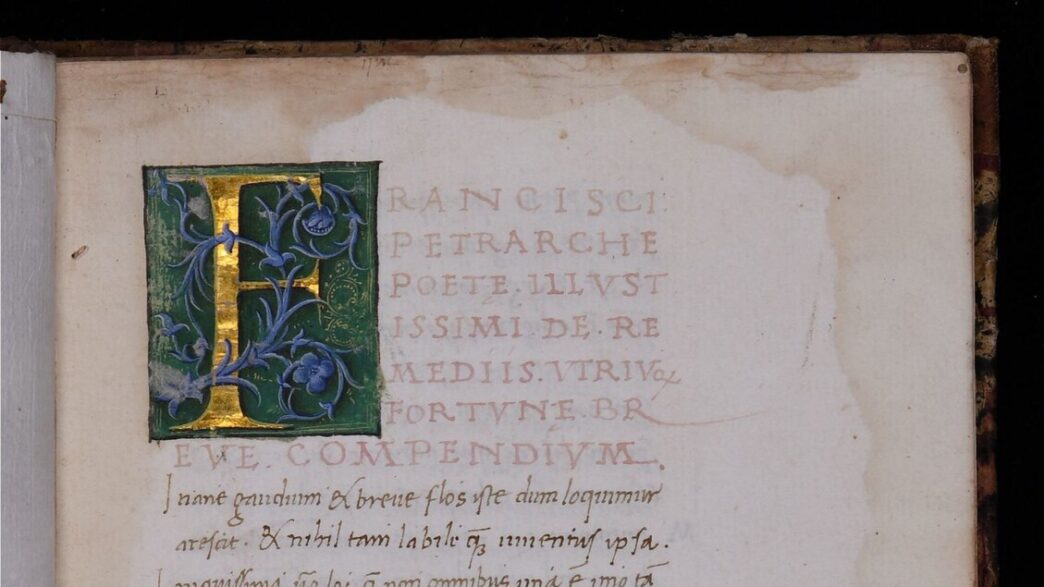 FRANCISCI
PETRARCHE
POETE. ILLVST
ISSIMI. DE. RE
MEDIIS. VTRIVꝙ
FORTVNE. BR
EVE. COMPENDIVM.
Inane gaudium & breue flos iste dum loquimur
arescit. & nihil tam labile qꝫ iuuentus ipsa.
omnibus una